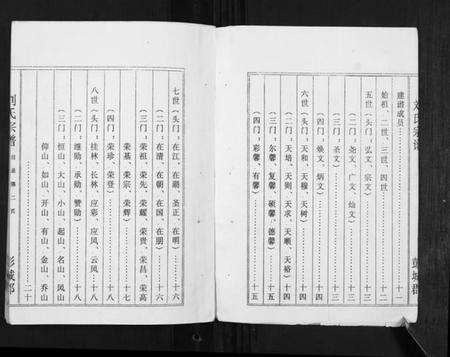 刘氏宗谱
彭城郡
建谱成员………十一
始祖、二世、三世、四世………十二
五世（头门：弘文、宗文）………十三
（二门：尧文、广文、灿文）
（三门：圣文）………十四
（四门：焕文、炳文）………十四
六世（头门：天和、天穆、天树）
（二门：天培、天则、天求、天顺、天裕）十四
（三门：尔馨、复馨、硕馨、德馨）
（四门：彩馨、有馨）………十五
七世（头门：在江、在湖、圣正、在明）………十六
（二门：在清、在朝、在国、在朋）
（三门：荣祖、荣先、荣耀、荣贵、荣昌、荣高
荣基、荣宗、荣辉）………十七
（四门：荣珍、荣登）
八世（头门：桂林、长林、应彩、应风、云风）………十八
（二门：继勋、承勋、赞勋）………十八
（三门：恒山、大山、小山、起山、名山、凤山
仰山、如山、开山、有山、金山、乔山
………二十
刘氏宗谱
目录第二页
彭城郡